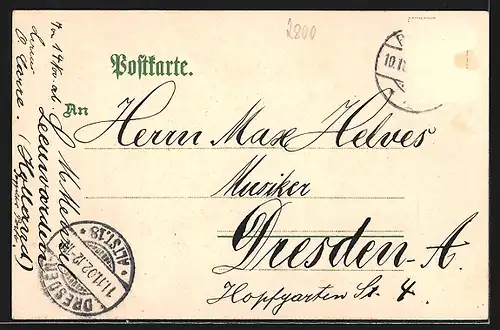 2800
Postkarte.
An
Herrn Max Helves
Musiker
Dresden-A.
Hopfgarten St. 4.
Leeuwarden
(Holland)
DRESDEN ALTST.18
11.11.02.12
10.11